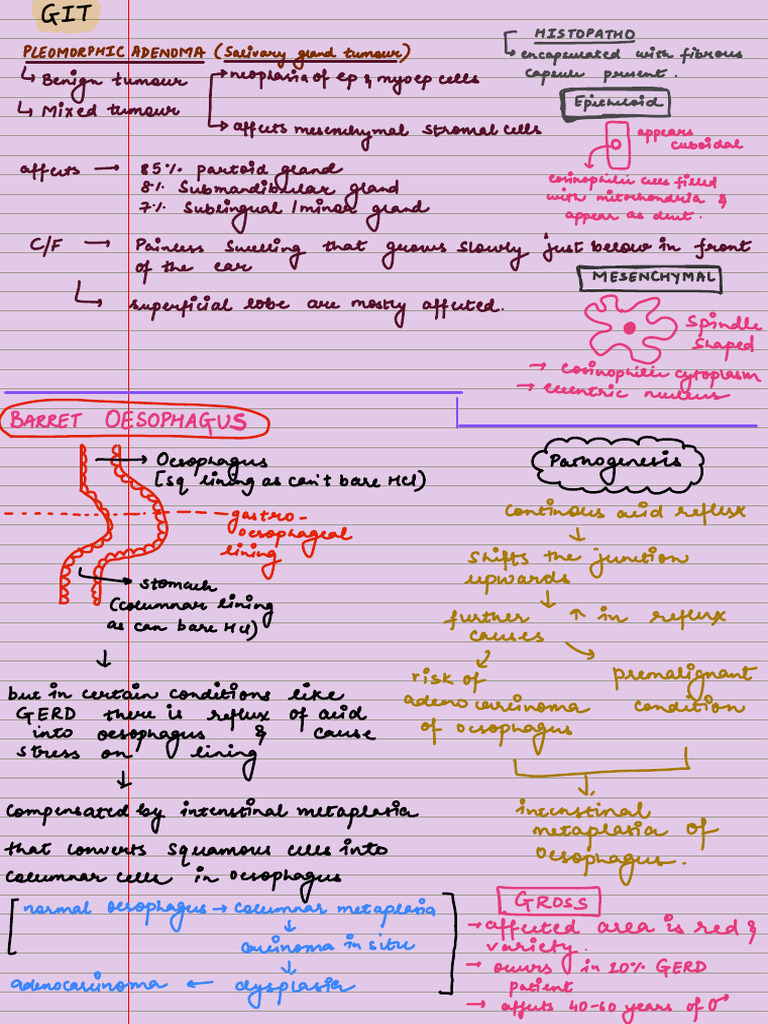 GIT
PLEOMORPHIC ADENOMA (Salivary gland tumour)
↳ Benign tumour
↳ Mixed tumour
→ neoplasia of ep & myoep cells
→ affects mesenchymal stromal cells
affects → 85% partoid gland
8% Submandibular gland
7% Sublingual / minor gland
C/F → Painless swelling that grows slowly just below in front
of the ear
↳ superficial lobe are mostly affected.
HISTOPATHO
↳ encapsulated with fibrous
capsule present.
Epitheloid
appears
cuboidal
eosinophilic cells filled
with mitochondria &
appear as duct.
MESENCHYMAL
Spindle
shaped
→ eosinophilic cytoplasm
→ eccentric nucleus
BARRET OESOPHAGUS
→ Oesophagus
[sq lining as can't bare HCl)
gastro-
oesophageal
lining
→ stomach
(columnar lining
as can bare HCl)
↓
but in certain conditions like
GERD there is reflux of acid
into oesophagus & cause
stress on lining
↓
compensated by intenstinal metaplasia
that converts squamous cells into
columnar cells in oesophagus
[normal oesophagus → columnar metaplasia
↓
carcinoma in situ
↓
adenocarcinoma ← dysplasia]
Pathogenesis
continous acid reflux
↓
shifts the junction
upwards
↓
further ↑ in reflux
causes
risk of
adenocarcinoma
of oesophagus
premalignant
condition
↓
intenstinal
metaplasia of
oesophagus.
GROSS
→ affected area is red &
variety.
→ occurs in 20% GERD
patient
→ affects 40-60 years of